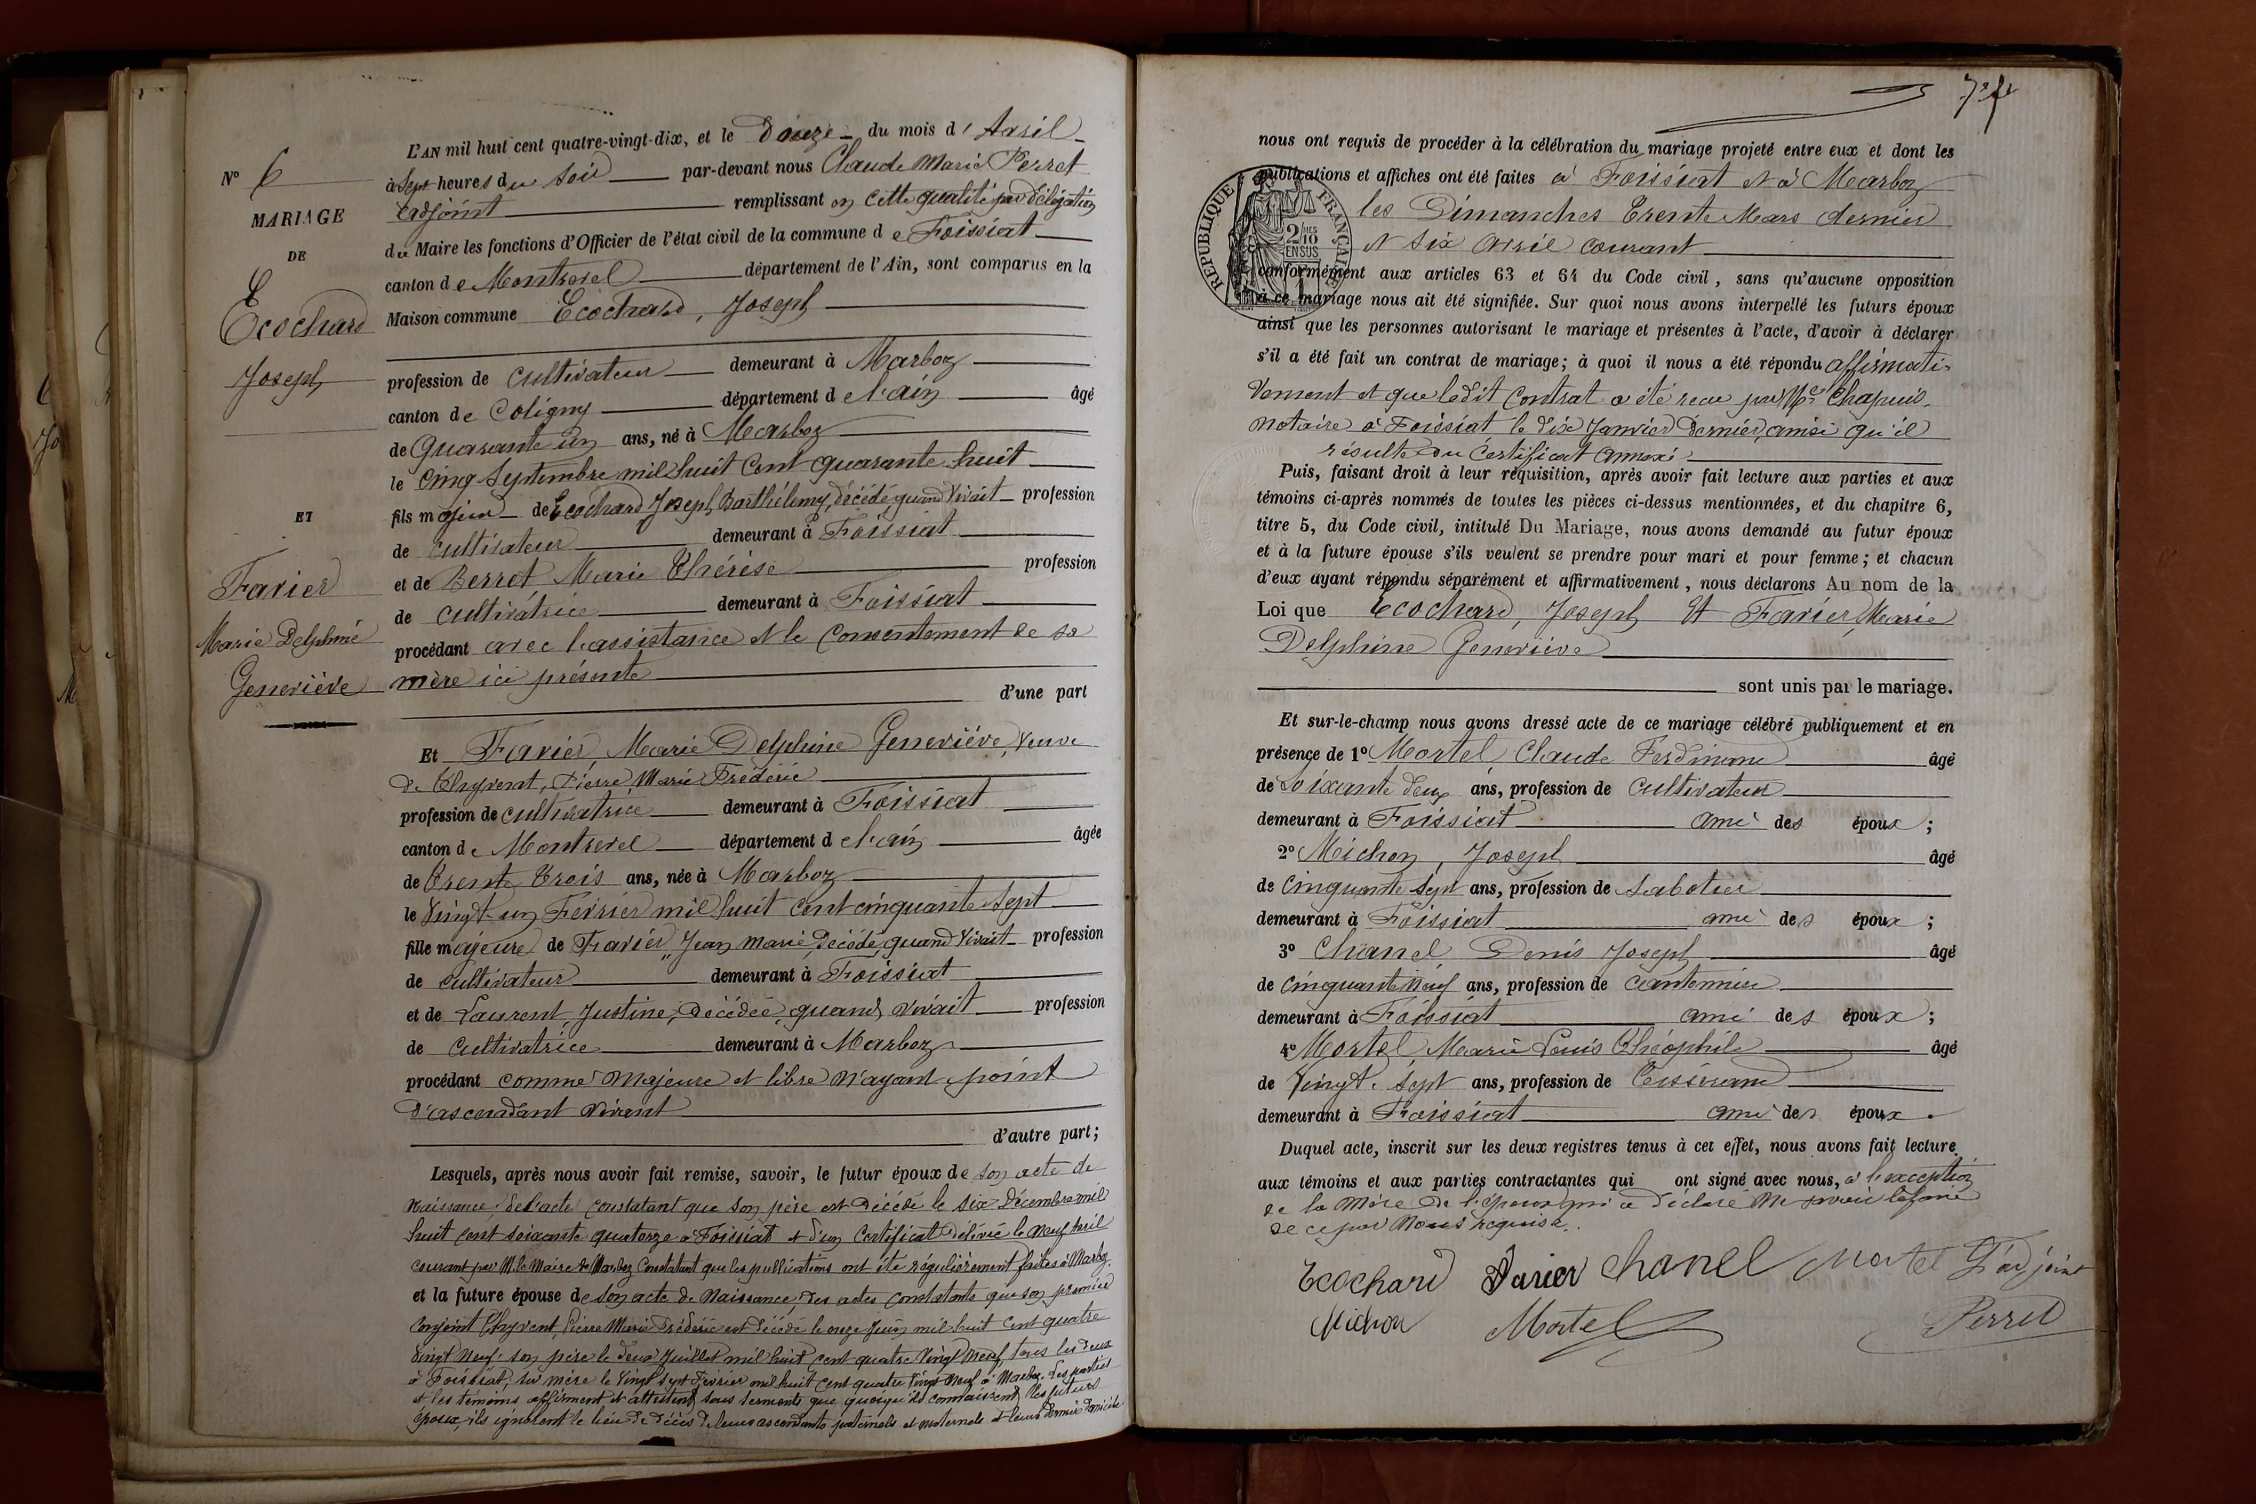 N° 6
MARIAGE
DE
E
Ecochard
Joseph
ET
Favier
Marie Delphine
Geneviève
L'AN mil huit cent quatre-vingt-dix, et le Douze du mois d'Avril
à Sept heures du soir par-devant nous Claude Marie Perret
adjoint remplissant en cette qualité par délégation
du Maire les fonctions d'Officier de l'état civil de la commune de Foissiat
canton de Montrevel département de l'Ain, sont comparus en la
Maison commune Ecochard, Joseph
profession de cultivateur demeurant à Marboz
canton de Coligny département de l'ain âgé
de Quarante un ans, né à Marboz
le Cinq Septembre mil huit Cent quarante huit
fils majeur de Ecochard Joseph Barthélemy, décédé, quand vivait profession
de cultivateur demeurant à Foissiat
et de Berrot Marie Thérèse profession
de cultivatrice demeurant à Foissiat
procédant avec l'assistance et le Consentement de sa
mère ici présente
d'une part
Et Favier, Marie Delphine Geneviève, Veuve
de Thyvent, Pierre Marie Frédéric
profession de cultivatrice demeurant à Foissiat
canton de Montrevel département de l'ain âgée
de Trente Trois ans, née à Marboz
le Vingt un Février mil huit cent cinquante sept
fille majeure de Favier, Jean Marie, décédé, quand vivait profession
de cultivateur demeurant à Foissiat
et de Laurent, Justine, Décédée, quand vivait profession
de cultivatrice demeurant à Marboz
procédant comme majeure et libre n'ayant point
d'ascendant vivant
d'autre part;
Lesquels, après nous avoir fait remise, savoir, le futur époux de son acte de
Naissance; de l'acte constatant que son père est décédé le six Décembre mil
huit cent soixante quatorze à Foissiat et d'un Certificat délivré le neuf Avril
courant par M. le Maire de Marboz constatant que les publications ont été régulièrement faites à Marboz.
et la future épouse de son acte de Naissance, des actes constatants que son premier
conjoint Thyvent, Pierre Marie Frédéric est décédé le onze Juin mil huit cent quatre
vingt neuf, son père le deux Juillet mil huit cent quatre Vingt neuf, tous les deux
à Foissiat, sa mère le Vingt sept Février mil huit cent quatre vingt neuf à Marboz. Les parties
et les témoins affirment et attestent sous serments que quoiqu'ils connaissent les futurs
époux, ils ignorent le lieu de décès de leurs ascendants paternels et maternels et leurs dernier domicile
nous ont requis de procéder à la célébration du mariage projeté entre eux et dont les
publications et affiches ont été faites à Foissiat et à Marboz
les Dimanches Trente Mars dernier
et six avril courant
conformément aux articles 63 et 64 du Code civil, sans qu'aucune opposition
à ce mariage nous ait été signifiée. Sur quoi nous avons interpellé les futurs époux
ainsi que les personnes autorisant le mariage et présentes à l'acte, d'avoir à déclarer
s'il a été fait un contrat de mariage; à quoi il nous a été répondu affirmati-
vement et que ledit Contrat a été recu par Me Chapuis
notaire à Foissiat le dix Janvier dernier, ainsi qu'il
résulte du Certificat annexé
Puis, faisant droit à leur réquisition, après avoir fait lecture aux parties et aux
témoins ci-après nommés de toutes les pièces ci-dessus mentionnées, et du chapitre 6,
titre 5, du Code civil, intitulé Du Mariage, nous avons demandé au futur époux
et à la future épouse s'ils veulent se prendre pour mari et pour femme; et chacun
d'eux ayant répondu séparément et affirmativement, nous déclarons Au nom de la
Loi que Ecochard, Joseph Et Favier, Marie
Delphine Geneviève
sont unis par le mariage.
Et sur-le-champ nous avons dressé acte de ce mariage célébré publiquement et en
présence de 1° Mortel Claude Ferdinand âgé
de Soixante deux ans, profession de cultivateur
demeurant à Foissiat ami des époux;
2° Michon, Joseph âgé
de Cinquante Sept ans, profession de sabotier
demeurant à Foissiat ami des époux;
3° Chanel Denis Joseph âgé
de Cinquante Neuf ans, profession de Cantonnier
demeurant à Foissiat ami des époux;
4° Mortel Marie Louis Théophile âgé
de Vingt-Sept ans, profession de Tisserand
demeurant à Foissiat ami des époux.
Duquel acte, inscrit sur les deux registres tenus à cet effet, nous avons fait lecture
aux témoins et aux parties contractantes qui ont signé avec nous, à l'exception
de la Mère de l'époux qui a déclaré ne savoir le faire
de ce par Nous requise.
Ecochard Favier Chanel Mortel L'adjoint
Michon Mortel Perret
REPUBLIQUE FRANÇAISE
2/10 EN SUS